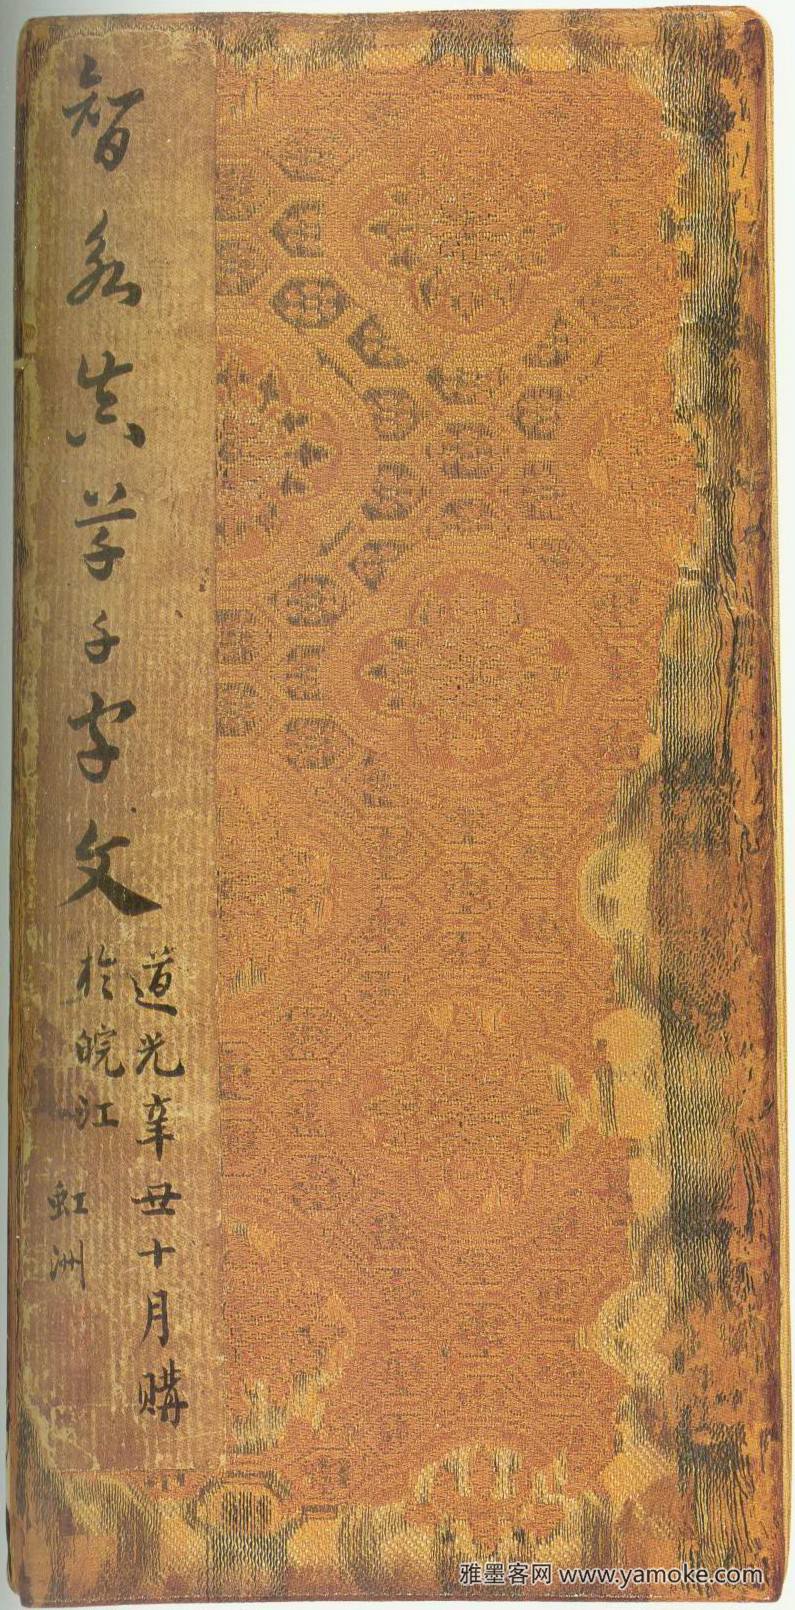 智永真草千字文
道光辛丑十月購
於皖江
虹洲
雅墨客网 www.yamoke.com